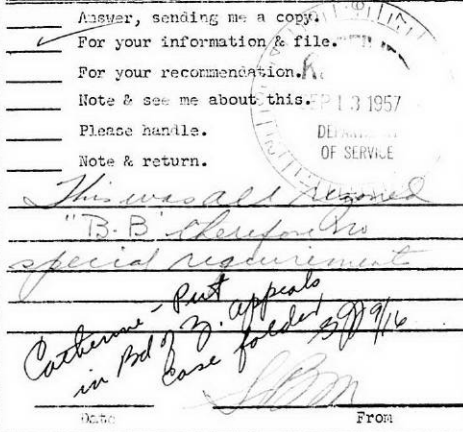 Answer, sending me a copy.
For your information & file.
For your recommendation.
Note & see me about this.
SEP 13 1957
Please handle.
DEPARTMENT
OF SERVICE
Note & return.
This was all rezoned
"B-B" therefore no
special requirements
Catherine - Put
in Bd of Z. Appeals
Case folder 9/16
Date From